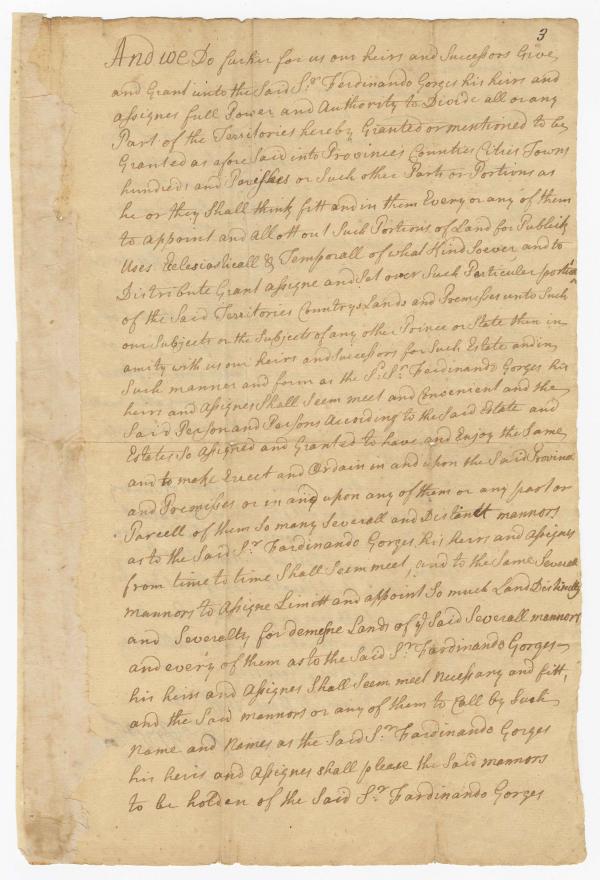 3
And we Do furher for us our heirs and Successors Give
and Grant unto the Said Sr. Ferdinando Gorges his heirs and
assignes full Power and Authority to Divide all or any
Part of the Territories hereby Granted or mentioned to be
Granted as afore Said into Provinces Counties Cities Towns
hundreds and Parishes or Such other Parts or Portions as
he or they Shall think fitt and in them Every or any of them
to appoint and allott out Such Portions of Land for Publick
Uses Eclesiasticall & Temporall of what Kind Soever and to
Distribute Grant assigne and Set over Such Perticular portions
of the Said Territories Countrys Lands and Premesses unto Such
our Subjects or the Subjects of any other Prince or State then in
amity with us our heirs and Successors for Such Estate and in
Such manner and form as the Sd. Sr. Ferdinando Gorges his
heirs and assignes Shall Seem meet and Convenient and the
Said Person and Persons According to the Said Estate and
Estates So assigned and Granted to have and Enjoy the Same
and to make Erect and Ordain in and upon the Said Province
and Premisses or in and upon any of them or any part or
Parcell of them So many Severall and Distinct mannors
as to the Said Sr. Fardinando Gorges his heirs and assignes
from time to time Shall Seem meet and to the Same Severall
mannors to assigne Limitt and appoint So much Land Distinctly
and Severalty for demesne Lands of ye Said Severall mannors
and every of them as to the Said Sr. Fardinando Gorges
his heirs and assignes Shall Seem meet necessary and fitt,
and the Said mannors or any of them to Call by Such
name and names as the Said Sr. Fardinando Gorges
his heirs and assignes shall please the Said mannors
to be holden of the Said Sr. Fardinando Gorges